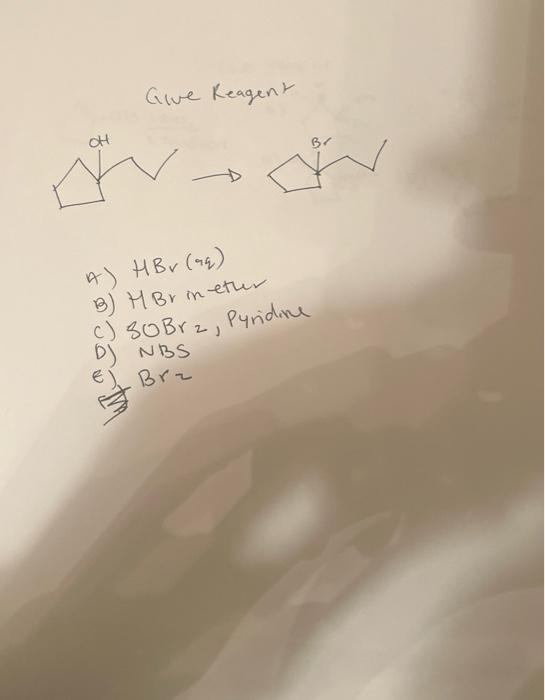 Give Reagent
OH
Br
A) HBr (aq)
B) HBr in ether
C) SOBr2, Pyridine
D) NBS
E) Br2